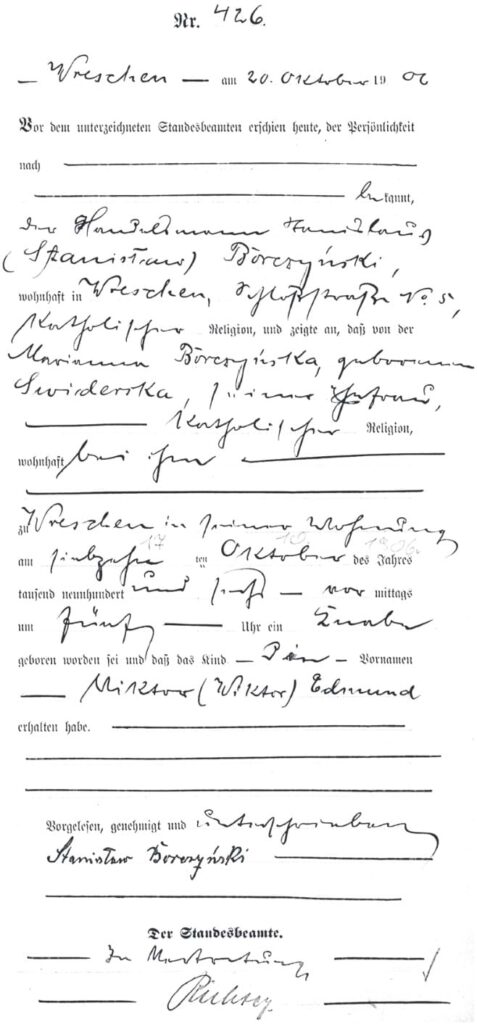 Nr. 426.
Wreschen am 20. Oktober 1906
Vor dem unterzeichneten Standesbeamten erschien heute, der Persönlichkeit
nach
bekannt,
der Handelsmann Stanislaus
(Stanisław) Borczyński,
wohnhaft in Wreschen, Schloßstraße No 5,
katholischer Religion, und zeigte an, daß von der
Marianna Borczyńska, geborenen
Swiderska, seiner Ehefrau,
katholischer Religion,
wohnhaft bei ihm
zu Wreschen in seiner Wohnung
am siebzehn ten Oktober des Jahres
17 10 1906.
tausend neunhundert und sechs vor mittags
um fünf Uhr ein Knabe
geboren worden sei und daß das Kind die Vornamen
Wiktor (Wiktor) Edmund
erhalten habe.
Vorgelesen, genehmigt und unterschrieben
Stanisław Borczyński
Der Standesbeamte.
In Vertretung